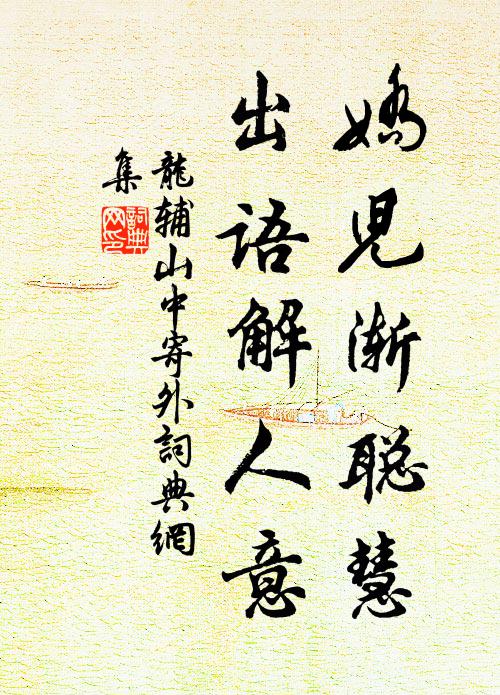 嬌児渐聪慧
出语解人意
龍辅山中寄外詞典網
集
詞典网印